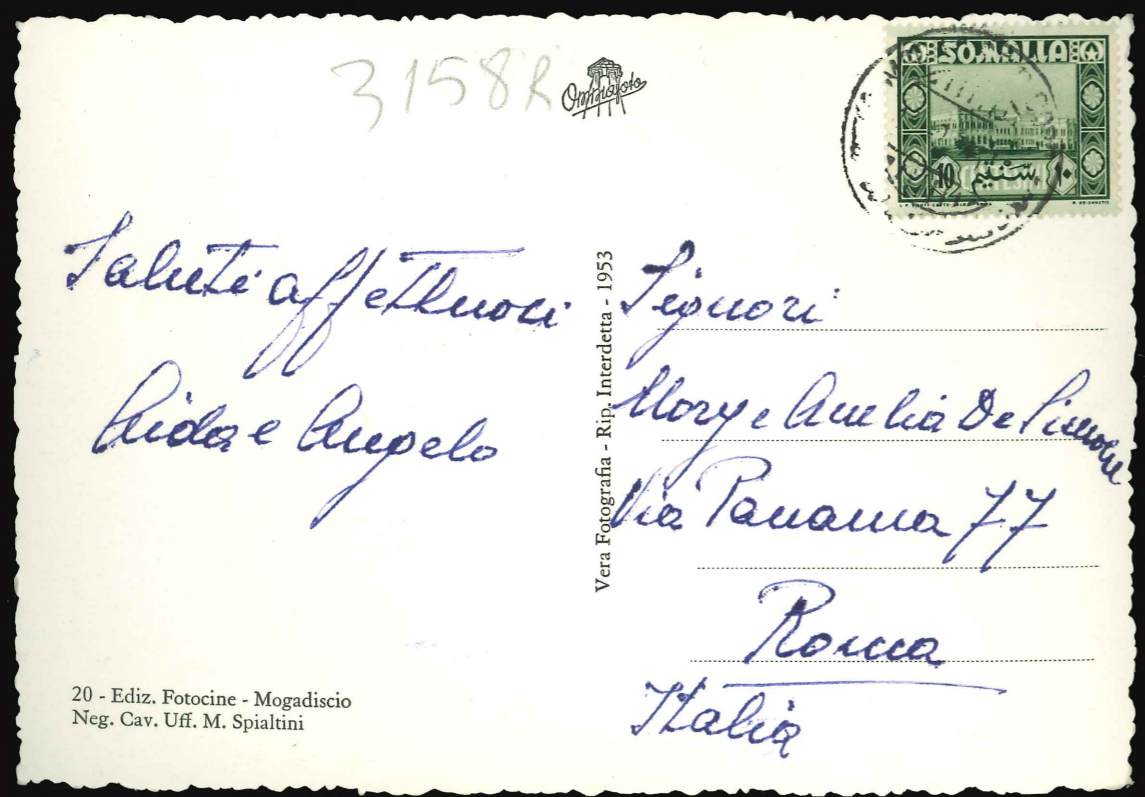 3158R
Omniafoto
SOMALIA
10 سنتيم ١٠
CENTESIMI
Saluti affettuosi
Aida e Angelo
Vera Fotografia - Rip. Interdetta - 1953
Signori
Mory e Amelia De Simone
Via Panama 77
Roma
Italia
20 - Ediz. Fotocine - Mogadiscio
Neg. Cav. Uff. M. Spialtini